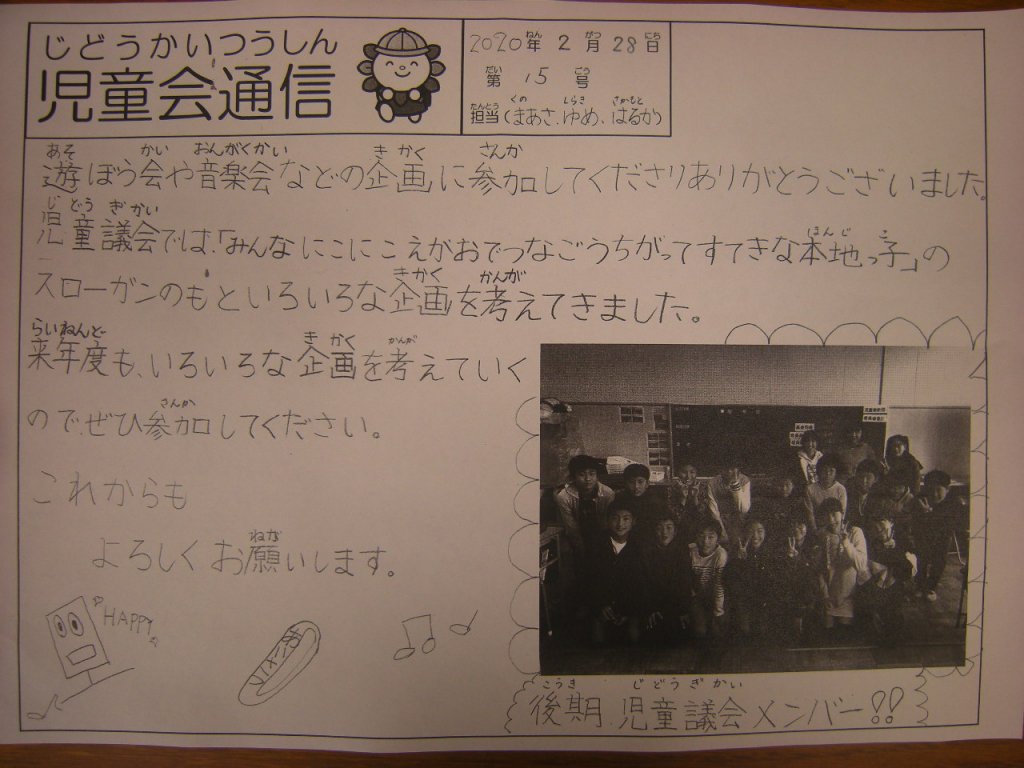 じどうかいつうしん
児童会通信
2020年 2月 28日
第 15 号
担当(まあさ、ゆめ、はるか)
遊ぼう会や音楽会などの企画に参加してくださりありがとうございました。
児童議会では、「みんなにこにこえがおでつなごうちがってすてきな本地っ子」の
スローガンのもといろいろな企画を考えてきました。
来年度も、いろいろな企画を考えていく
ので、ぜひ参加してください。
これからも
よろしくお願いします。
HAPPY
後期 児童議会メンバー!!